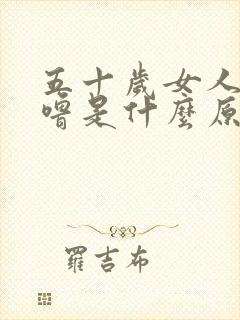 五十歲女人
噌是什麼原
羅吉布